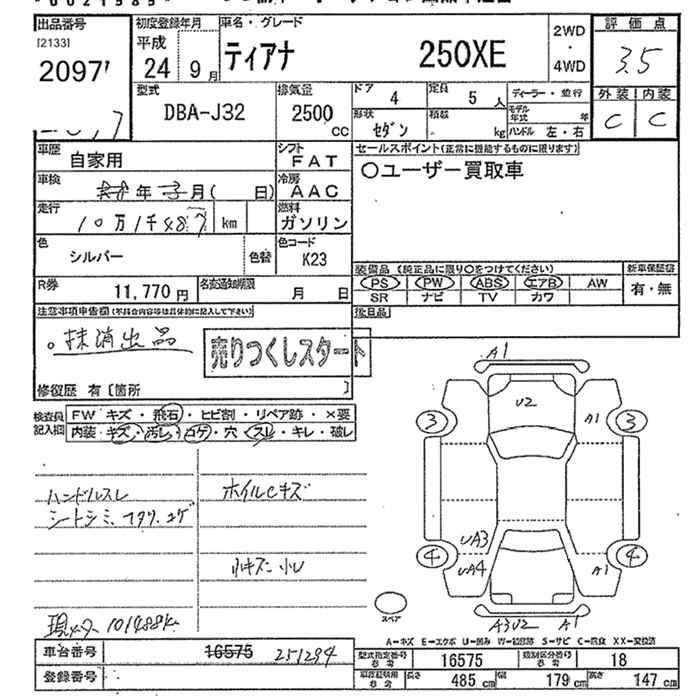 出品番号 初度登録年月 車名・グレード 評価点
[2133] 平成 2WD
2097 24 9月 ティアナ 250XE ・ 3.5
4WD
型式 排気量 ドア 4 定員 5人 ディーラー・並行 外装 内装
DBA-J32 2500CC 形状 セダン 積載 kg モデル年式 年 C C
ハンドル 左・右
車歴 自家用 シフト FAT セールスポイント(正常に機能するものに限ります)
車検 年 月( 日) 冷房 AAC 〇ユーザー買取車
走行 10万1千487 km 燃料 ガソリン
色 シルバー 色替 色コード K23
装備品 (純正品に限り〇をつけてください) 新車保証書
R券 11,770円 名変通知期限 月 日 PS PW ABS エアB AW 有・無
SR ナビ TV カワ
注意事項申告欄(不具合内容等は具体的に記入して下さい) 後日品
。抹消出品 売りつくしスタート
修復歴 有〔箇所 〕
検査員記入欄 FW キズ・飛石・ヒビ割・リペア跡・×要
内装・キズ・汚レ・コゲ・穴・スレ・キレ・破レ
A1
U2
3 A1 3
ハンドルスレ ホイルCキズ
シートシミ
UA3
4 UA4 A1 4
小キズ 小U
スペア
現メーター 101488k A3U2 A1
A－キズ E－エクボ U－凹み W－補修跡 S－サビ C－腐食 XX－交換済
車台番号 16575 251294 型式指定番号 参考 16575 類別区分番号 参考 18
登録番号 車両諸元情報 参考 長さ 485cm 幅 179cm 高さ 147cm